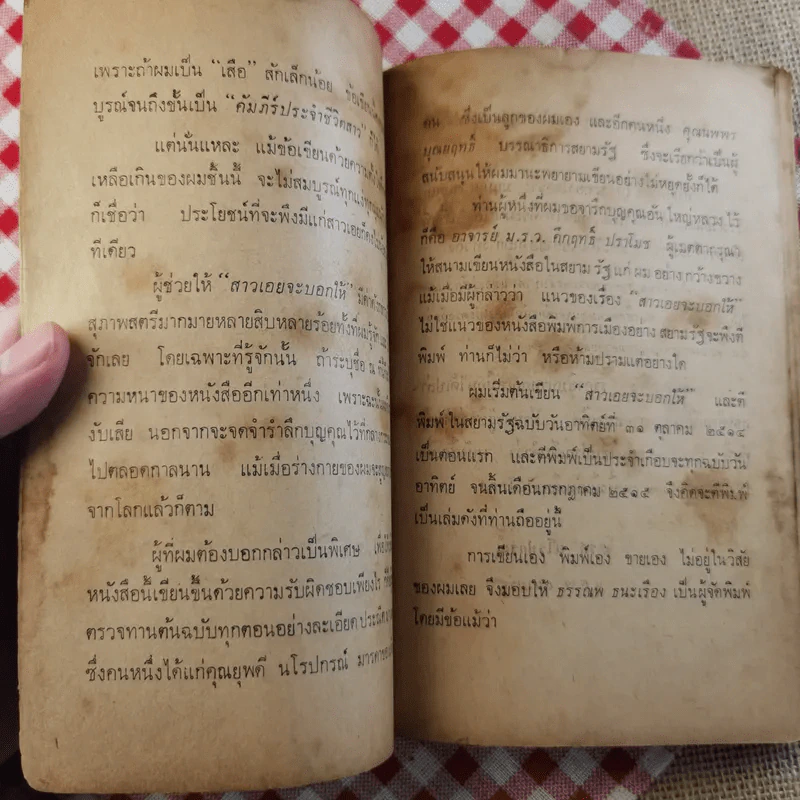 เพราะถ้าผมเป็น “เสือ” สักเล็กน้อย ข้อเขียน
บูรณ์จนถึงขั้นเป็น “คัมภีร์ประจำชีวิตสาว”
แต่นั่นแหละ แม้ข้อเขียนด้วยความ
เหลือเกินของผมชิ้นนี้ จะไม่สมบูรณ์ทุกแง่
ก็เชื่อว่า ประโยชน์ที่จะพึงมีแก่สาวเอย
ทีเดียว
ผู้ช่วยให้ “สาวเอยจะบอกให้”
สุภาพสตรีมากมายหลายสิบหลายร้อยทั้งที่ผมรู้จักและ
จักเลย โดยเฉพาะที่รู้จักนั้น ถ้าระบุชื่อ ณ ที่นี้
ความหนาของหนังสืออีกเท่าหนึ่ง เพราะ
งับเสีย นอกจากจะจดจำรำลึกบุญคุณไว้ที่
ไปตลอดกาลนาน แม้เมื่อร่างกายของผม
จากโลกแล้วก็ตาม
ผู้ที่ผมต้องบอกกล่าวเป็นพิเศษ
หนังสือนี้เขียนขึ้นด้วยความรับผิดชอบเพียงไร
ตรวจทานต้นฉบับทุกตอนอย่างละเอียด
ซึ่งคนหนึ่งได้แก่คุณยุพดี นโรปกรณ์ มารดา
คน ซึ่งเป็นลูกของผมเอง และอีกคนหนึ่ง คุณนพพร
บุณยฤทธิ์ บรรณาธิการสยามรัฐ ซึ่งจะเรียกว่าเป็นผู้
สนับสนุนให้ผมมานะพยายามเขียนอย่างไม่หยุดยั้งก็ได้
ท่านผู้หนึ่งที่ผมขอจารึกบุญคุณอันใหญ่หลวงไว้
ก็คือ อาจารย์ ม.ร.ว. คึกฤทธิ์ ปราโมช ผู้เมตตากรุณา
ให้สนามเขียนหนังสือในสยามรัฐแก่ผมอย่างกว้างขวาง
แม้เมื่อมีผู้กล่าวว่า แนวของเรื่อง “สาวเอยจะบอกให้”
ไม่ใช่แนวของหนังสือพิมพ์การเมืองอย่างสยามรัฐจะพึงตี
พิมพ์ ท่านก็ไม่ว่า หรือห้ามปรามแต่อย่างใด
ผมเริ่มต้นเขียน “สาวเอยจะบอกให้” และตี
พิมพ์ในสยามรัฐฉบับวันอาทิตย์ที่ ๓๑ ตุลาคม ๒๕๑๔
เป็นตอนแรก และตีพิมพ์เป็นประจำเกือบจะทุกฉบับวัน
อาทิตย์ จนสิ้นเดือนกรกฎาคม ๒๕๑๕ จึงคิดจะตีพิมพ์
เป็นเล่มดังที่ท่านถืออยู่นี้
การเขียนเอง พิมพ์เอง ขายเอง ไม่อยู่ในวิสัย
ของผมเลย จึงมอบให้ ธรรณพ ธนะเรือง เป็นผู้จัดพิมพ์
โดยมีข้อแม้ว่า